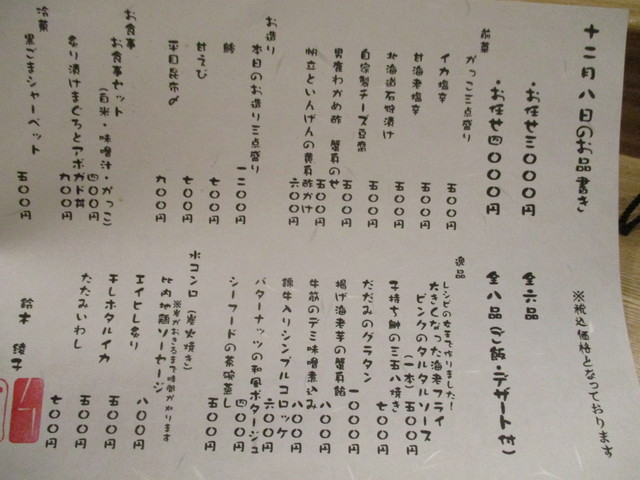 十二月八日のお品書き
※税込価格となっております
・お任せ三〇〇〇円 全六品
・お任せ四〇〇〇円 全八品(ご飯・デザート付)
前菜
がっこ三点盛り 五〇〇円
イカ塩辛 五〇〇円
甘海老塩辛 五〇〇円
北海道石狩漬け 五〇〇円
自家製チーズ豆腐 五〇〇円
男鹿わかめ酢 蟹身のせ 五〇〇円
帆立といんげんの黄身酢かけ 六〇〇円
お造り
本日のお造り三点盛り 一二〇〇円
鯵 七〇〇円
甘えび 七〇〇円
平目昆布〆 九〇〇円
お食事
お食事セット
(白米・味噌汁・がっこ) 四〇〇円
炙り漬けまぐろとアボカド丼 九〇〇円
冷菓
黒ごまシャーベット 五〇〇円
逸品
レシピの女王で作りました!
大きくなった海老フライ
ピンクのタルタルソース
(一本) 五〇〇円
子持ち鮎の三五八焼き 七〇〇円
だだみのグラタン 一〇〇〇円
揚げ海老芋の蟹身餡 八〇〇円
牛筋のデミ味噌煮込み 八〇〇円
錦牛入りシンプルコロッケ 六〇〇円
バターナッツの和風ポタージュ 四〇〇円
シーフードの茶碗蒸し 五〇〇円
水コンロ(炭火焼き)
※炭がおきるまで時間かかります
比内地鶏ソーセージ 八〇〇円
エイヒレ炙り 五〇〇円
干しホタルイカ 五〇〇円
たたみいわし 七〇〇円
鈴木 綾子